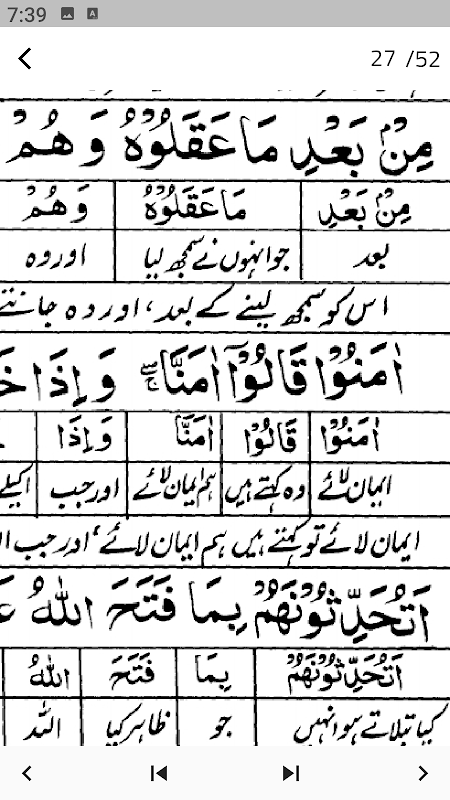 7:39
27 /52
مِنْۢ بَعْدِ مَا عَقَلُوْهُ وَ هُمْ
مِنْۢ بَعْدِ مَا عَقَلُوْهُ وَ هُمْ
بعد جو انہوں نے سمجھ لیا اور وہ
اس کو سمجھ لینے کے بعد، اور وہ جانتے
اٰمَنُوْا قَالُوْۤا اٰمَنَّا ۚۖ وَ اِذَا خَ
اٰمَنُوْا قَالُوْۤا اٰمَنَّا وَ اِذَا
ایمان لائے وہ کہتے ہیں ہم ایمان لائے اور جب اکیلے
ایمان لائے تو کہتے ہیں ہم ایمان لائے، اور جب ا
اَتُحَدِّثُوْنَهُمْ بِمَا فَتَحَ اللّٰهُ عَ
اَتُحَدِّثُوْنَهُمْ بِمَا فَتَحَ اللّٰهُ
کیا بتلاتے ہو انہیں جو ظاہر کیا اللہ